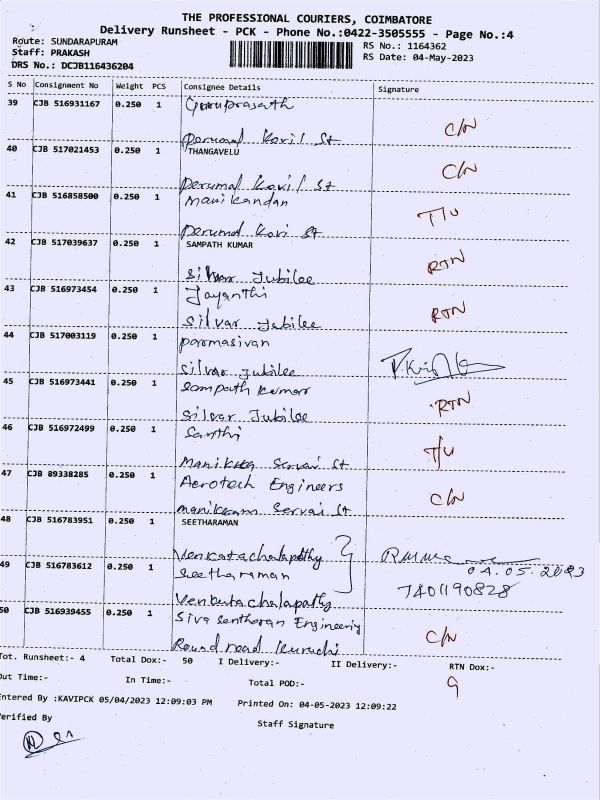 THE PROFESSIONAL COURIERS, COIMBATORE
Delivery Runsheet - PCK - Phone No.:0422-3505555 - Page No.:4
Route: SUNDARAPURAM RS No.: 1164362
Staff: PRAKASH RS Date: 04-May-2023
DRS No.: DCJB116436204
S No Consignment No Weight PCS Consignee Details Signature
39 CJB 516931167 0.250 1 Guruprasath
Perumal Kovil St C/N
40 CJB 517021453 0.250 1 THANGAVELU
Perumal Kovil St C/N
41 CJB 516858500 0.250 1 Manikandan
Perumal Kovi St T/U
42 CJB 517039637 0.250 1 SAMPATH KUMAR
Silvar Jubilee RTN
43 CJB 516973454 0.250 1 Jayanthi
Silvar Jubilee RTN
44 CJB 517003119 0.250 1 paramasivan
Silvar Jubilee
45 CJB 516973441 0.250 1 Sampath Kumar
Silvar Jubilee RTN
46 CJB 516972499 0.250 1 Santhi
Manikka Servai St T/U
47 CJB 89338285 0.250 1 Aerotech Engineers
Manikkam Servai St C/N
48 CJB 516783951 0.250 1 SEETHARAMAN
Venkatachalapathy
49 CJB 516783612 0.250 1 Seetharaman 04.05.2023
Venkatachalapathy 7401190828
50 CJB 516939455 0.250 1 Siva Santhoran Engineering
Round road Kuruchi C/N
Tot. Runsheet:- 4 Total Dox:- 50 I Delivery:- II Delivery:- RTN Dox:-
Out Time:- In Time:- Total POD:- 9
Entered By :KAVIPCK 05/04/2023 12:09:03 PM Printed On: 04-05-2023 12:09:22
Verified By Staff Signature